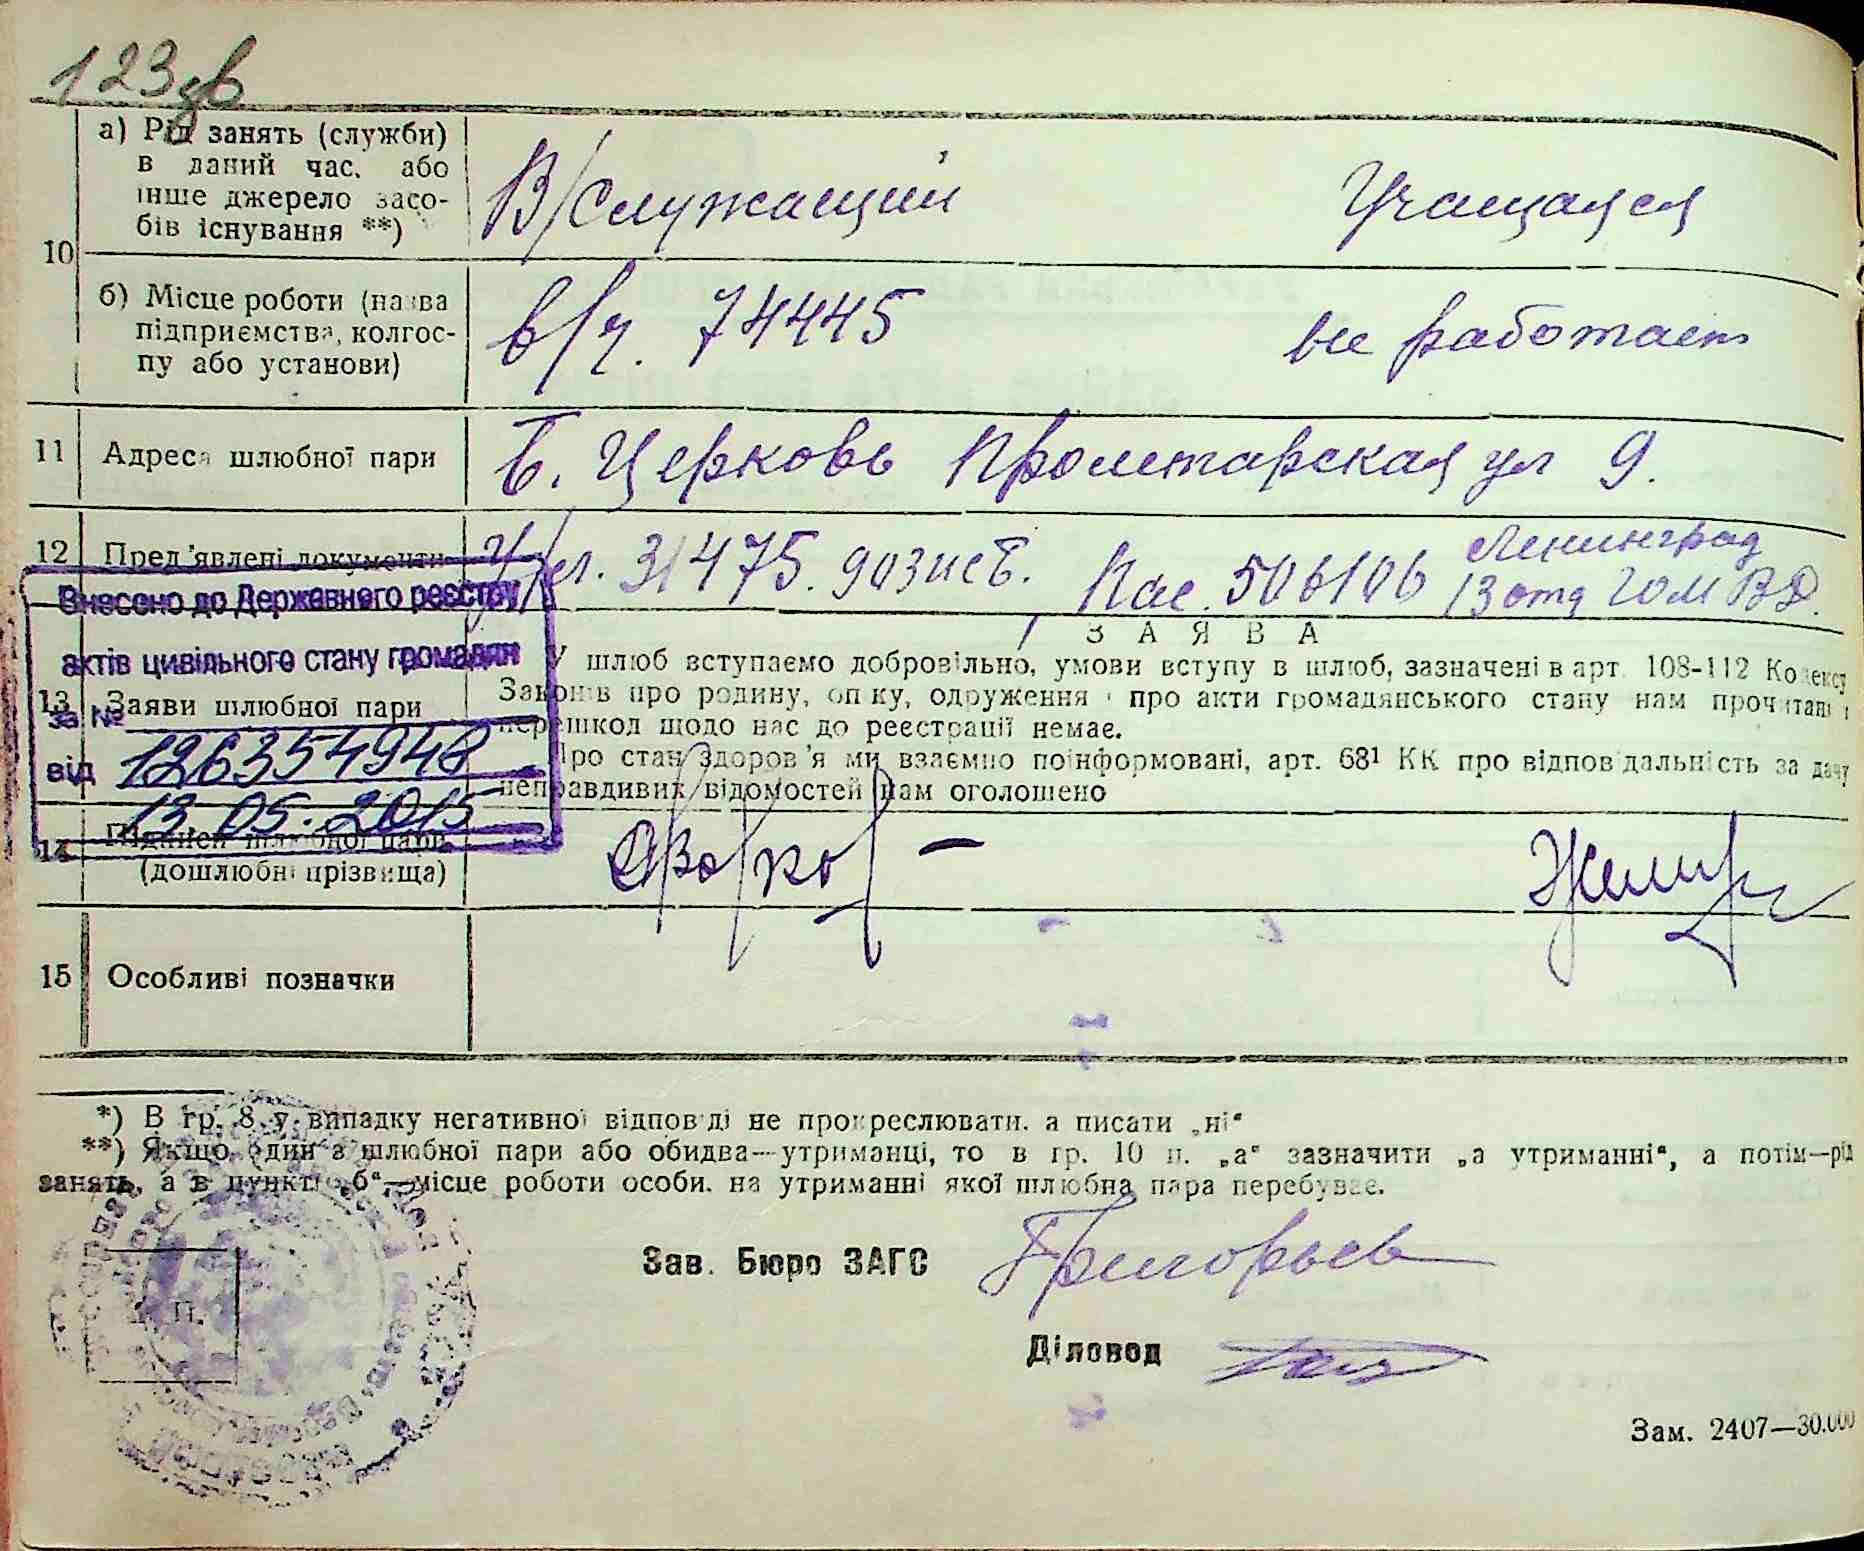 123зв
а) Рід занять (служби)
в даний час. або
інше джерело засо-
бів існування **)
В/служащий
Учащаяся
10
б) Місце роботи (назва
підприємства, колгос-
пу або установи)
в/ч. 74445
не работает
11
Адреса шлюбної пари
Б. Церковь Пролетарская ул 9.
12
Пред'явлені документи
31475.
Пас. 506106
Ленинград
13 отд ГОМ
Внесено до Державного реєстру
актів цивільного стану громадян
за №
126354948
від
13.05.2015
З А Я В А
13
Заяви шлюбної пари
У шлюб вступаємо добровільно, умови вступу в шлюб, зазначені в арт. 108-112 Кодексу
Законів про родину, опіку, одруження і про акти громадянського стану нам прочитані і
перешкод щодо нас до реєстрації немає.
Про стан здоров'я ми взаємно поінформовані, арт. 68¹ КК про відповідальність за дачу
неправдивих відомостей нам оголошено
14
Підписи шлюбної пари
(дошлюбні прізвища)
15
Особливі позначки
*) В гр. 8 у випадку негативної відповіді не прокреслювати. а писати „ні“
**) Якщо один з шлюбної пари або обидва—утриманці, то в гр. 10 п. „а“ зазначити „а утриманні“, а потім—рід
занять, а в пункті „б“—місце роботи особи. на утриманні якої шлюбна пара перебуває.
Зав. Бюро ЗАГС
Григорьев
П.
Діловод
Зам. 2407—30.000